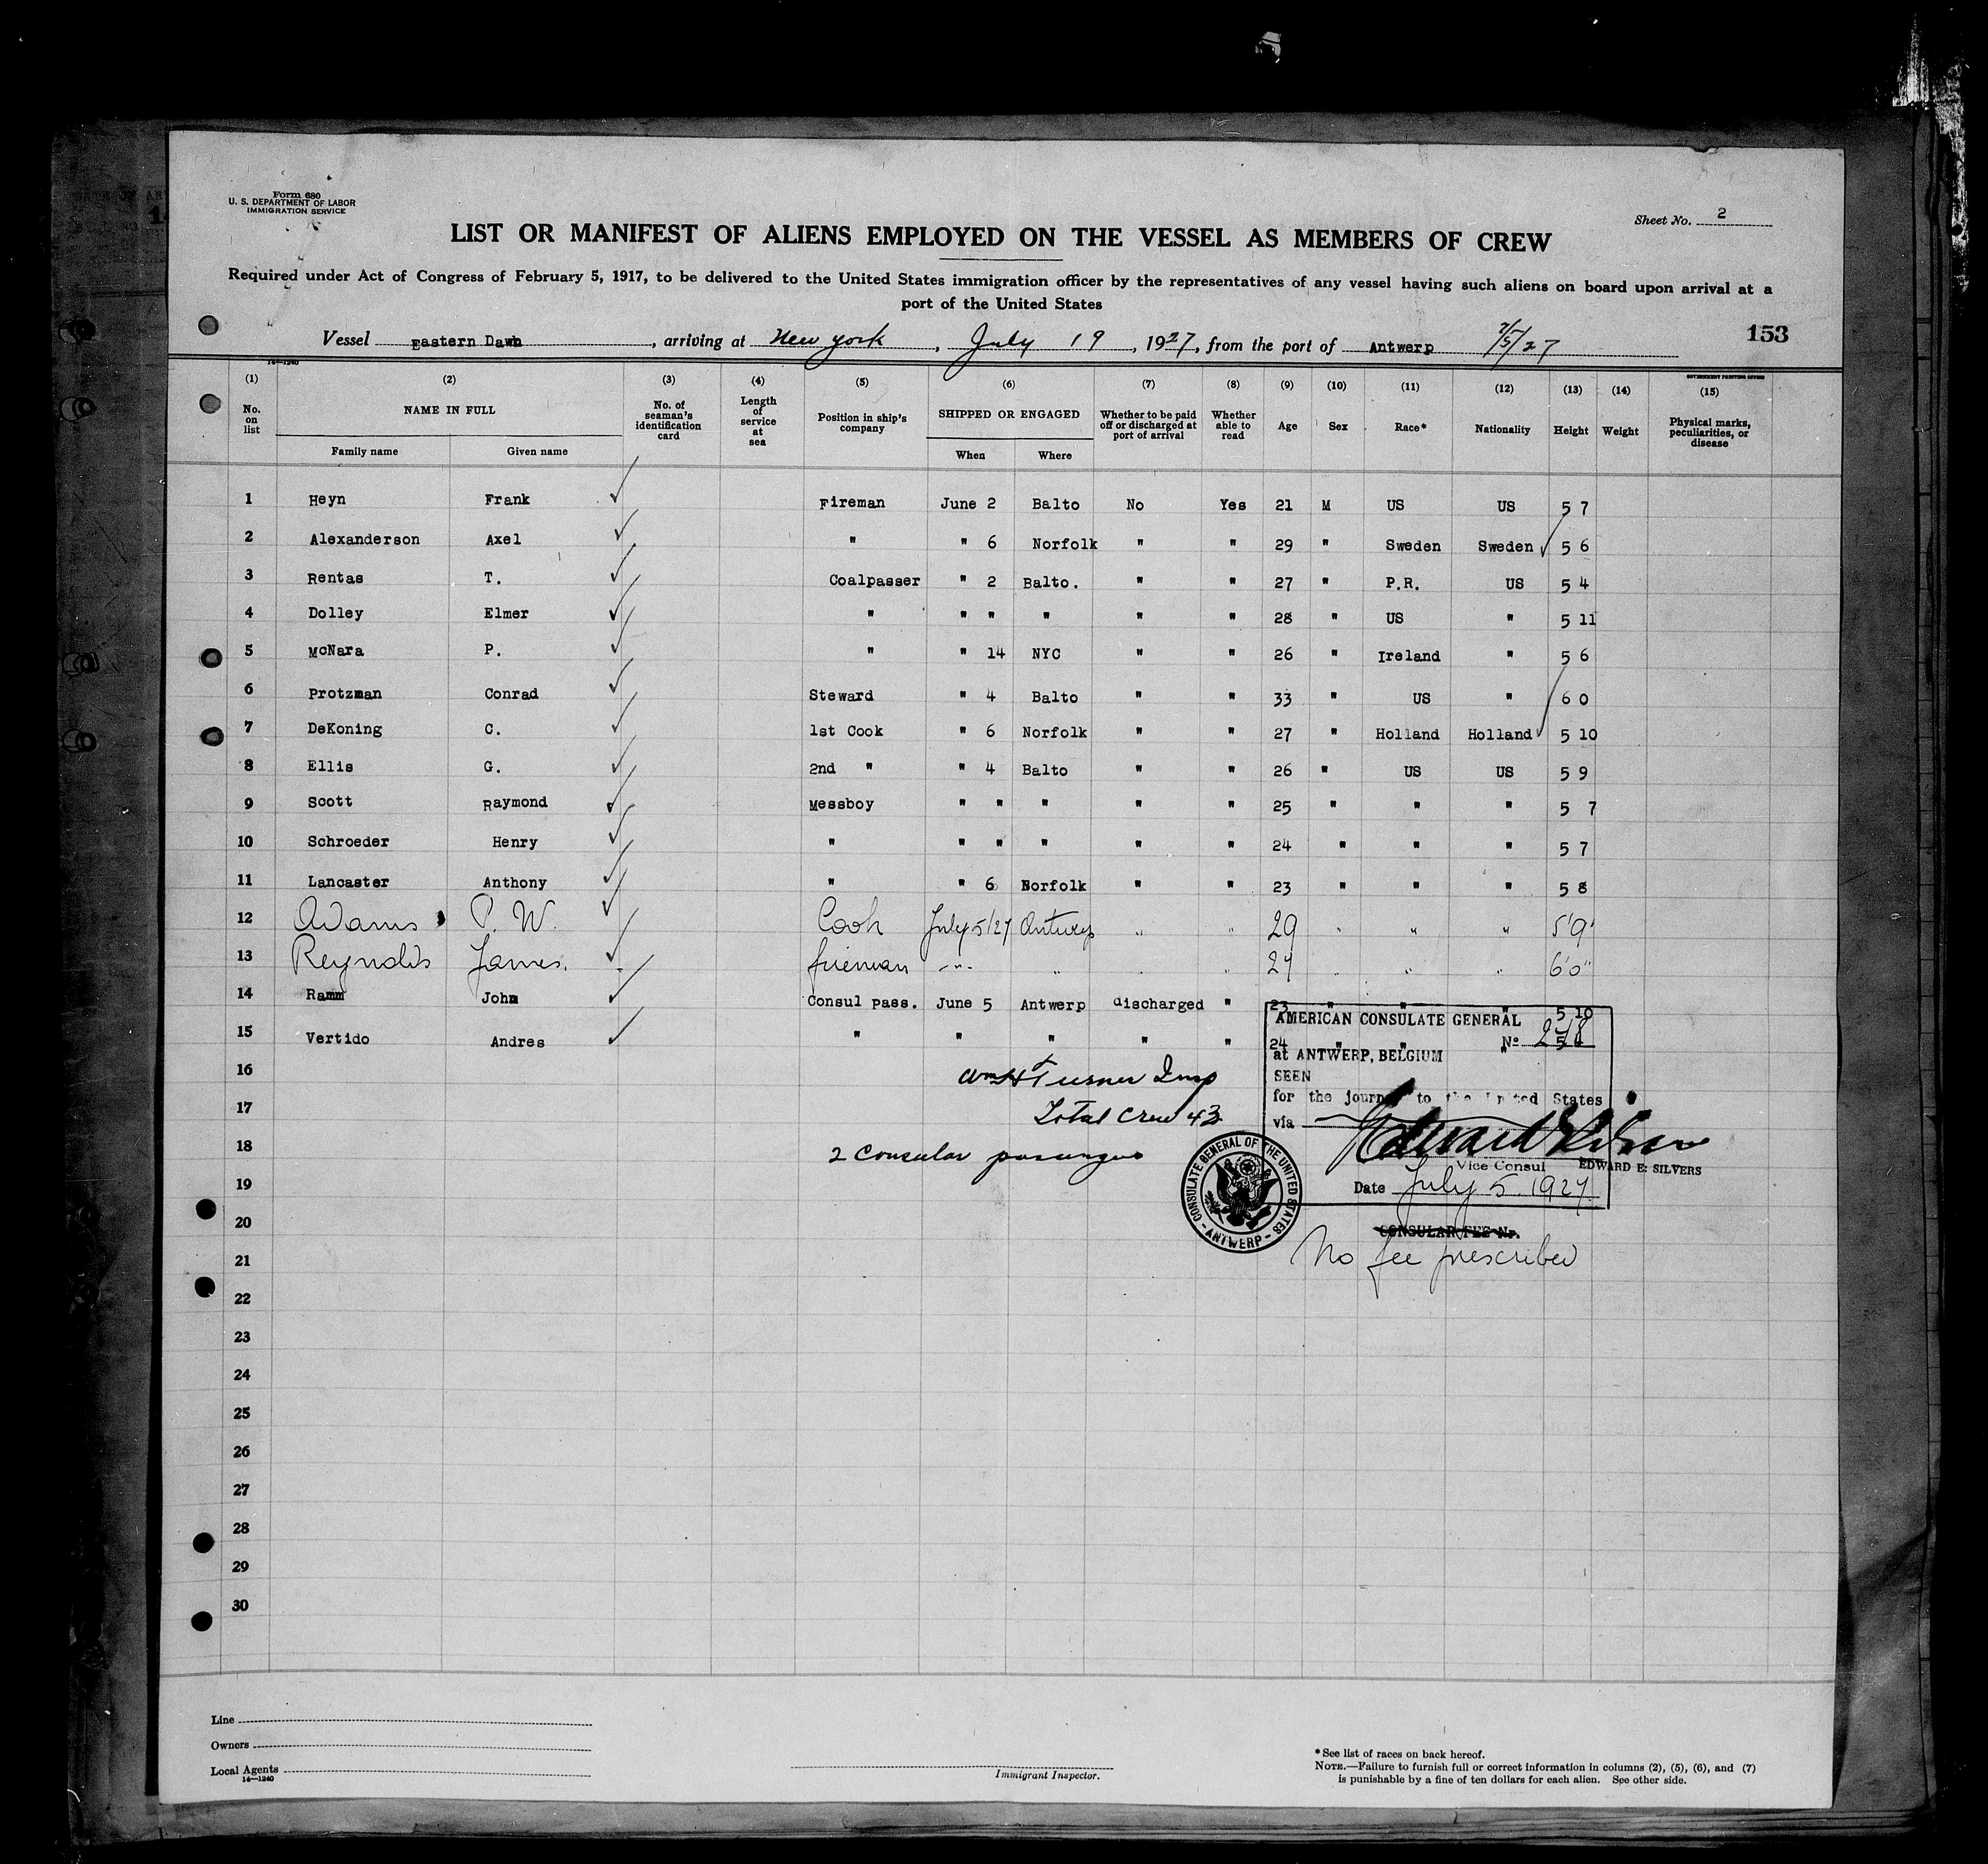 Form 680
U. S. DEPARTMENT OF LABOR
IMMIGRATION SERVICE
Sheet No. 2
LIST OR MANIFEST OF ALIENS EMPLOYED ON THE VESSEL AS MEMBERS OF CREW
Required under Act of Congress of February 5, 1917, to be delivered to the United States immigration officer by the representatives of any vessel having such aliens on board upon arrival at a
port of the United States
153
Vessel Eastern Dawn, arriving at New York, July 19, 1927, from the port of Antwerp 7/5/27
14—1240
GOVERNMENT PRINTING OFFICE
(1) (2) (3) (4) (5) (6) (7) (8) (9) (10) (11) (12) (13) (14) (15)
No. on list NAME IN FULL No. of seaman's identification card Length of service at sea Position in ship's company SHIPPED OR ENGAGED Whether to be paid off or discharged at port of arrival Whether able to read Age Sex Race* Nationality Height Weight Physical marks, peculiarities, or disease
Family name Given name When Where
1 Heyn Frank Fireman June 2 Balto No Yes 21 M US US 5 7
2 Alexanderson Axel " " 6 Norfolk " " 29 " Sweden Sweden 5 6
3 Rentas T. Coalpasser " 2 Balto. " " 27 " P.R. US 5 4
4 Dolley Elmer " " " " " " 28 " US " 5 11
5 McNara P. " " 14 NYC " " 26 " Ireland " 5 6
6 Protzman Conrad Steward " 4 Balto " " 33 " US " 6 0
7 DeKoning C. 1st Cook " 6 Norfolk " " 27 " Holland Holland 5 10
8 Ellis G. 2nd " " 4 Balto " " 26 " US US 5 9
9 Scott Raymond Messboy " " " " " 25 " " " 5 7
10 Schroeder Henry " " " " " " 24 " " " 5 7
11 Lancaster Anthony " " 6 Norfolk " " 23 " " " 5 8
12 Adams P. W. Cook July 5/27 Antwerp " " 29 " " " 5'9"
13 Reynolds James. fireman -"- " " " 27 " " " 6'0"
14 Ramm John Consul pass. June 5 Antwerp discharged " 23 " " " 5 10
15 Vertido Andres " " " " " 24 " " " 5
16 Wm H Turner Insp
17 Total Crew 43
18 2 Consular passengers
19
20
21
22
23
24
25
26
27
28
29
30
AMERICAN CONSULATE GENERAL
No
at ANTWERP, BELGIUM
SEEN
for the journey to the United States
via
Vice Consul EDWARD E. SILVERS
Date July 5. 1927.
CONSULATE GENERAL OF THE UNITED STATES
- ANTWERP -
CONSULAR FEE No.
No fee prescribed
Line
Owners
Local Agents
14—1240
Immigrant Inspector.
* See list of races on back hereof.
NOTE.—Failure to furnish full or correct information in columns (2), (5), (6), and (7)
is punishable by a fine of ten dollars for each alien. See other side.